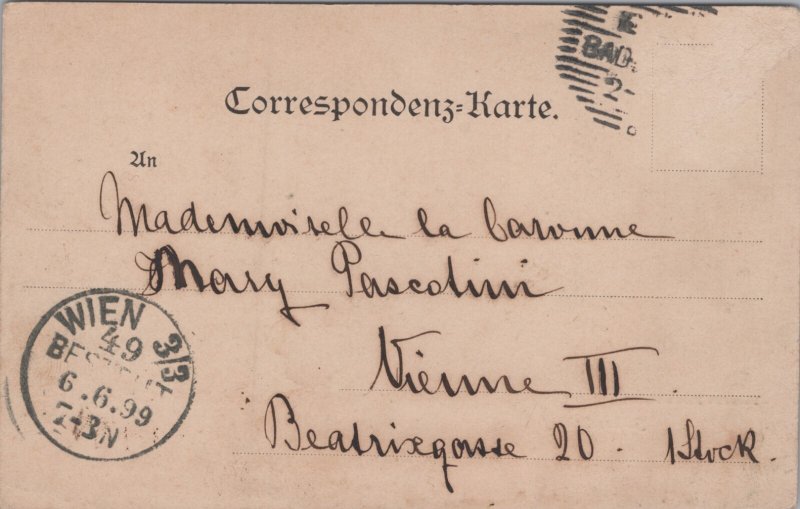 BAD
2-
Correspondenz-Karte.
An
Mademoiselle la baronne
Mary Pascotini
Vienne III.
Beatrixgasse 20. 1 Stock.
WIEN 3/3
49
BESTELLT
6.6.99
N